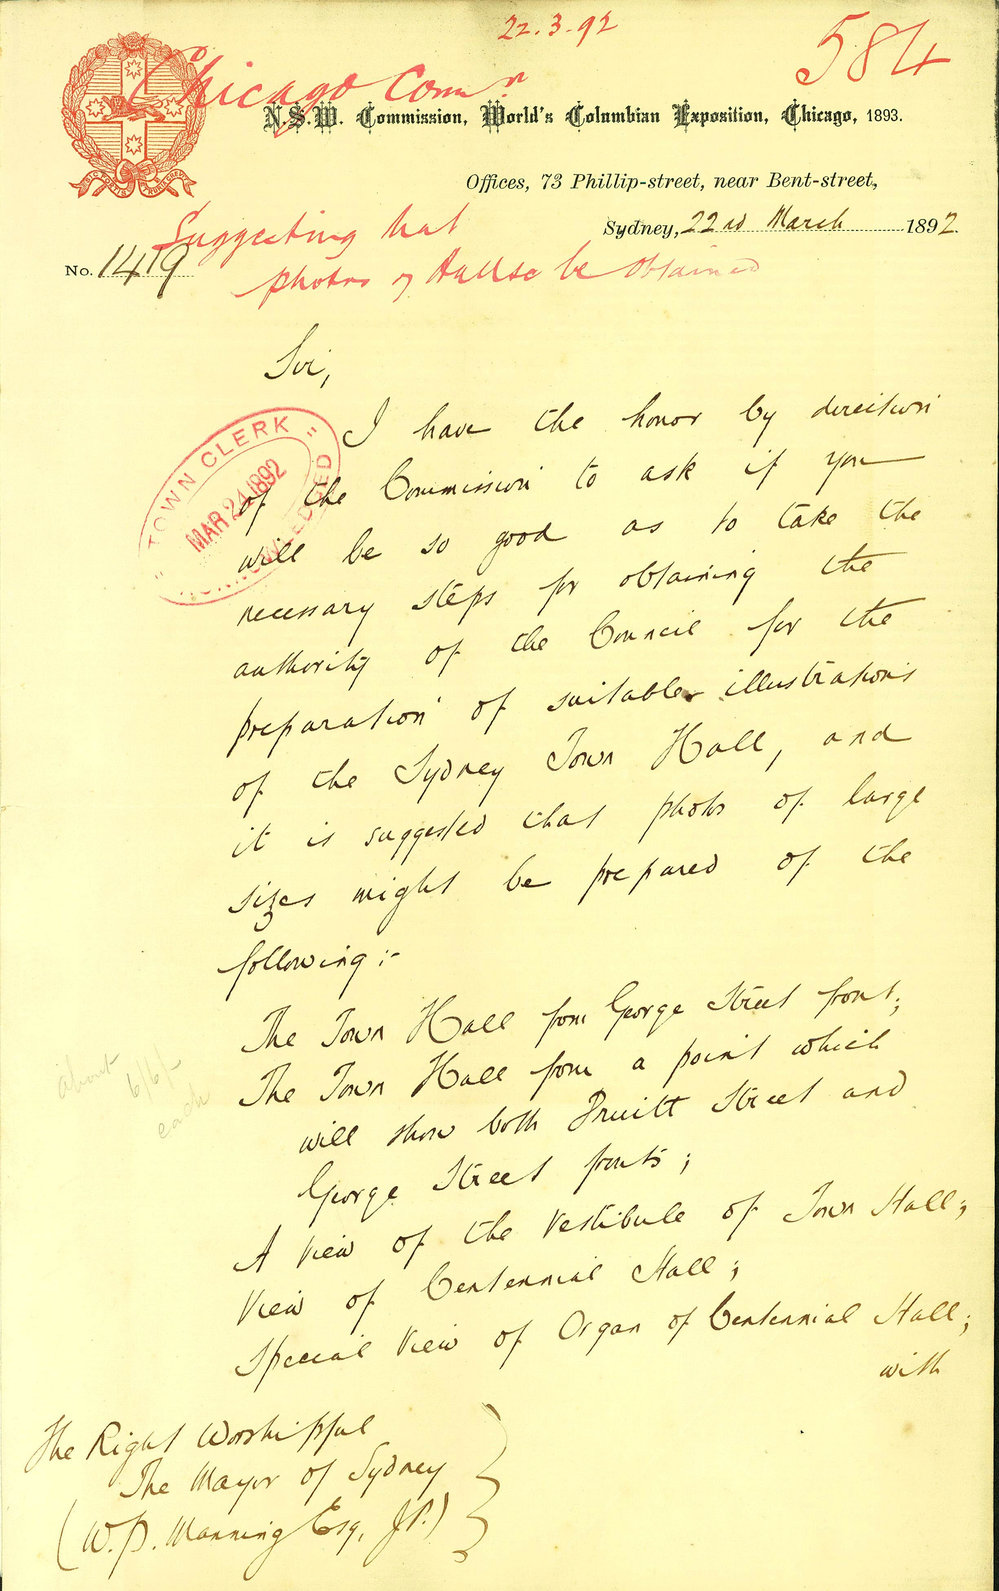 22.3.92
584
Chicago Comn
N.S.W. Commission, World's Columbian Exposition, Chicago, 1893.
Offices, 73 Phillip-street, near Bent-street,
Sydney, 22nd March 1892.
No. 1419
Suggesting that
photos of Hall &c be obtained
Sir,
I have the honor by direction
of the Commission to ask if you
will be so good as to take the
necessary steps for obtaining the
authority of the Council for the
preparation of suitable illustrations
of the Sydney Town Hall, and
it is suggested that photos of large
sizes might be prepared of the
following:-
TOWN CLERK
MAR 24 1892
The Town Hall from George Street front;
The Town Hall from a point which
will show both Druitt Street and
George Street fronts;
A view of the vestibule of Town Hall;
View of Centennial Hall;
Special View of Organ of Centennial Hall;
with
about
6/6/-
each
The Right Worshipful
The Mayor of Sydney
(W.P. Manning Esq, J.P.)